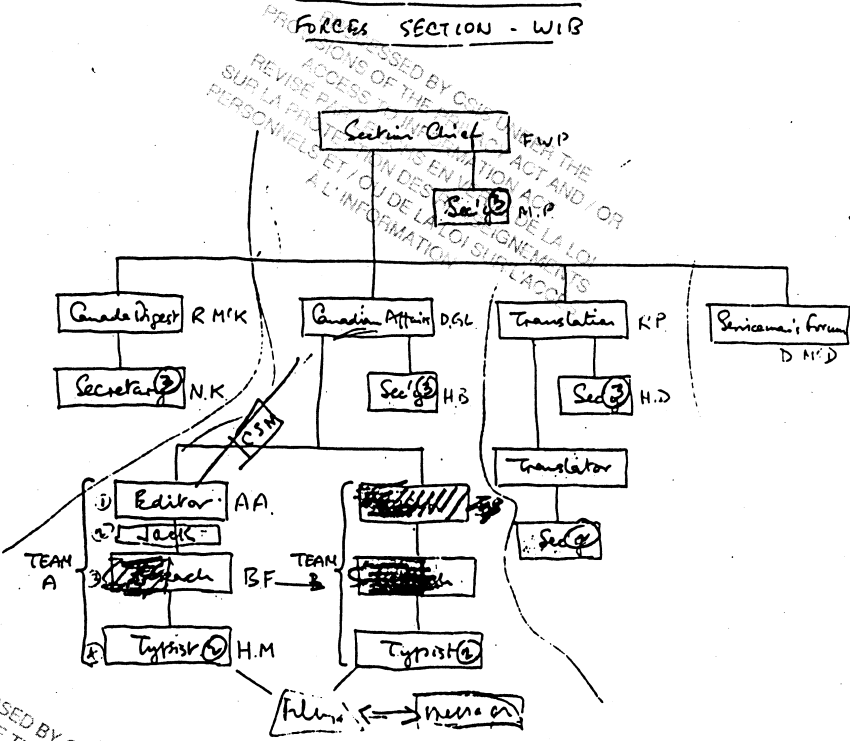 FORCES SECTION - WIB
PROCESSED BY CSIS UNDER THE
PROVISIONS OF THE PRIVACY ACT AND / OR
ACCESS TO INFORMATION ACT
REVISÉ PAR LE SCRS EN VERTU DE LA LOI
SUR LA PROTECTION DES RENSEIGNEMENTS
PERSONNELS ET / OU DE LA LOI SUR L'ACCÈS
À L'INFORMATION
Section Chief F.W.P
Sec'y 3 M.P
Canada Digest R McK
Canadian Affairs D.G.L
Translation K.P.
Servicemen's Forum
D McD
Secretary 3 N.K.
Sec'y 3 H.B
Sec 3 H.D
CSM
Translator
Sec
TEAM A
1 Editor A A.
2 Jack
3 B.F
4 Typist 2 H.M
TEAM B
Typist 2